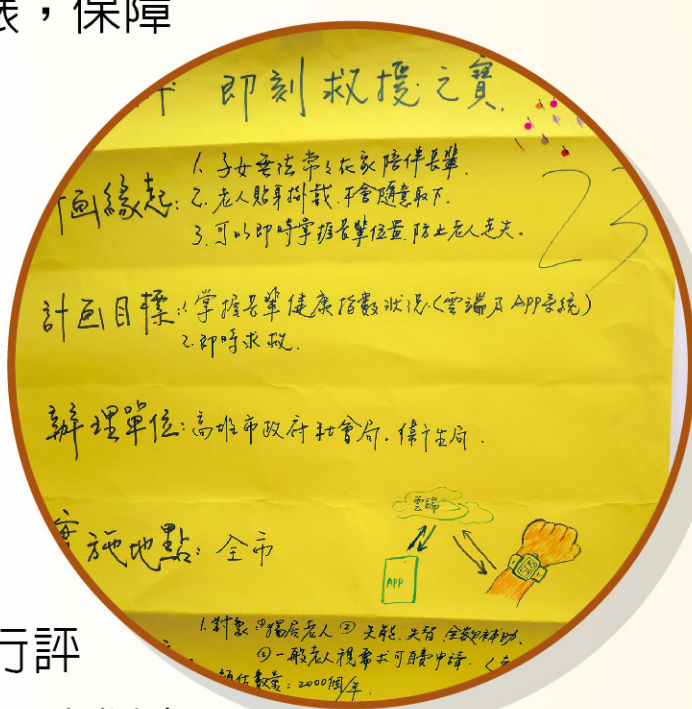 ，保障
即刻救援之寶
23
画緣起：1. 子女無法常々在家陪伴長輩.
2. 老人貼身掛載.不會隨意取下.
3. 可以即時掌握長輩位置.防止老人走失.
計画目標：1. 掌握長輩健康指數狀況.(雲端及APP系統)
2. 即時求救.
辦理單位：高雄市政府社會局.衛生局.
施地點：全市
雲端
APP
SOS
1. 對象：①獨居老人②失能.失智.全額補助.
③一般老人視需求可自費申請.
預估數量：2000個/年.
行評